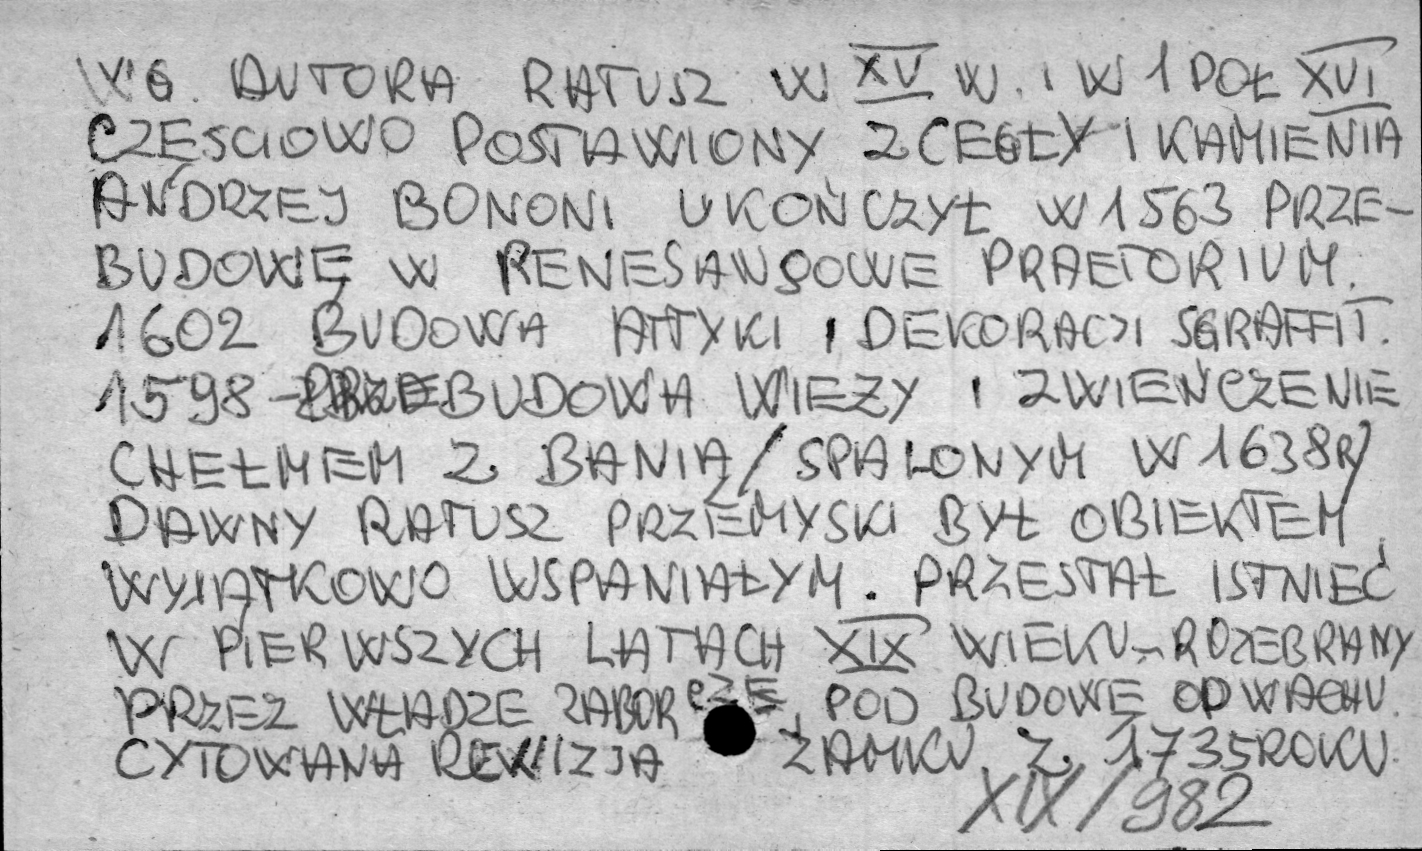 WG. AUTORA RATUSZ W XV W. I W 1 POŁ XVI
CZĘSCIOWO POSTAWIONY Z CEGŁY I KAMIENIA
ANDRZEJ BONONI UKOŃCZYŁ W 1563 PRZE-
BUDOWĘ W RENESANSOWE PRAETORIUM.
1602 BUDOWA ATTYKI I DEKORACJI SGRAFFIT.
1598 - PRZEBUDOWA WIEZY I ZWIEŃCZENIE
CHEŁMEM Z BANIĄ / SPALONYM W 1638R/
DAWNY RATUSZ PRZEMYSKI BYŁ OBIEKTEM
WYJĄTKOWO WSPANIAŁYM. PRZESTAŁ ISTNIEĆ
W PIERWSZYCH LATACH XIX WIEKU - ROZEBRANY
PRZEZ WŁADZE ZABORCZE POD BUDOWE ODWACHU.
CYTOWANA REWIZJA ZAMKU Z 1735 ROKU.
XIX/982